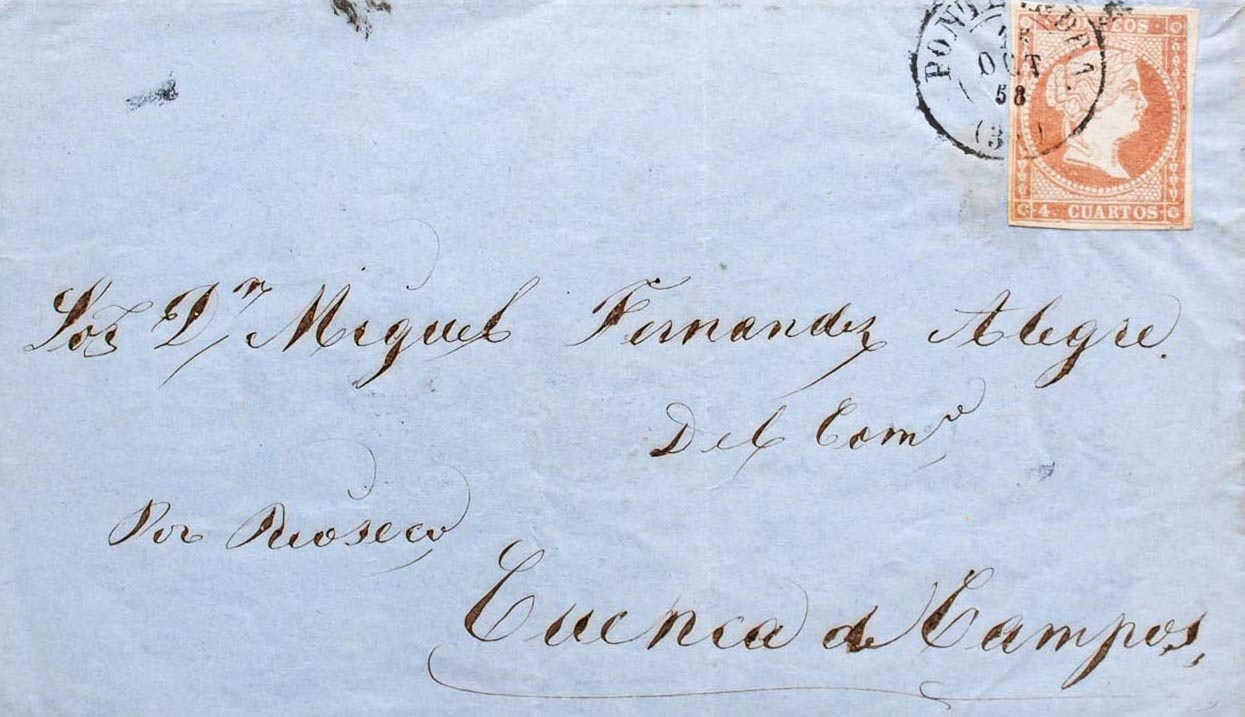 CORREOS
OCT
58
4. CUARTOS
Sor Dn Miguel Fernandez Alegre.
Del Como
Por Rioseco
Cuenca de Campos,